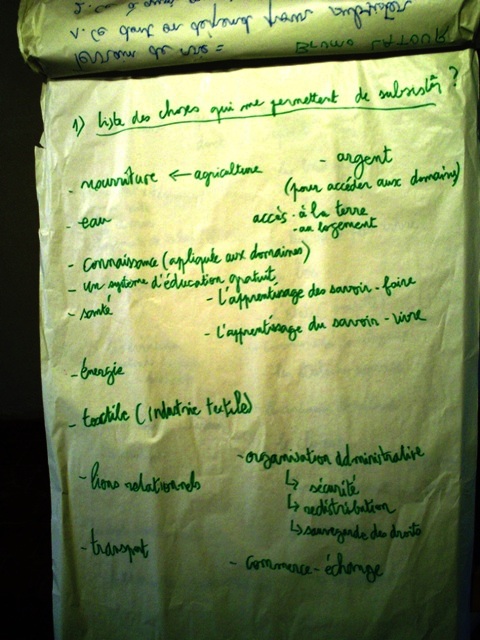 BRUNO LATOUR
terrain de vie =
1) Liste des choses qui me permettent de subsister ?
- nourriture ← agriculture
- argent
(pour accéder aux domaines)
- eau
accès - à la terre
- au logement
- Connaissance (appliquée aux domaines)
- Un système d'éducation gratuit
- l'apprentissage des savoir-faire
- santé
- l'apprentissage du savoir-vivre
- énergie
- textile (industrie textile)
- organisation administrative
- liens relationnels
↳ sécurité
↳ redistribution
↳ sauvegarde des droits
- transport
- commerce - échange